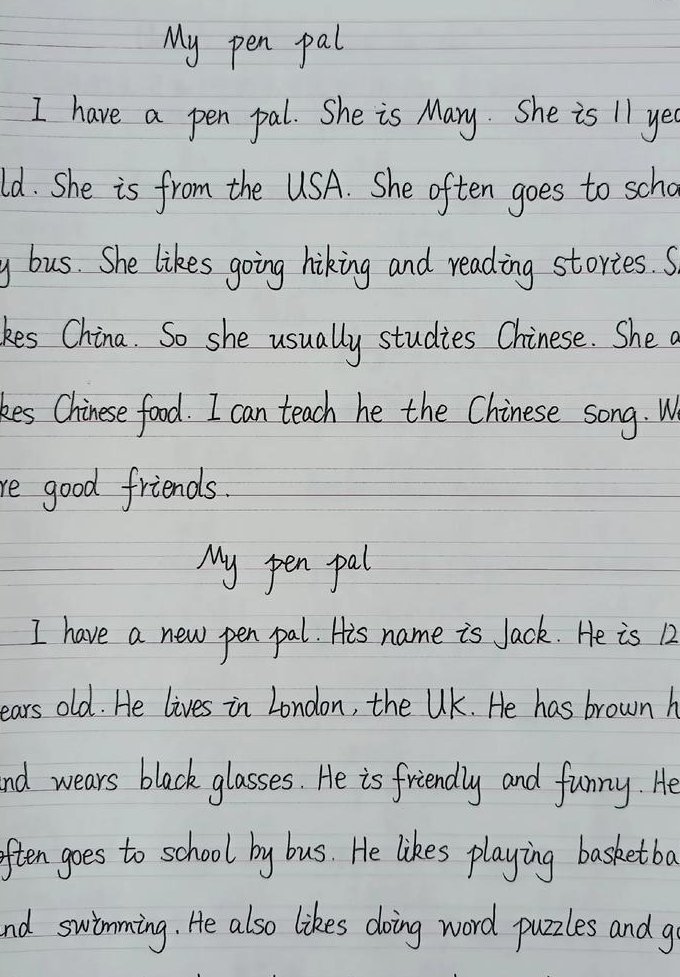 My pen pal
I have a pen pal. She is Mary. She is 11 yea
ld. She is from the USA. She often goes to scho
y bus. She likes going hiking and reading stories. S
kes China. So she usually studies Chinese. She a
kes Chinese food. I can teach he the Chinese song. We
re good friends.
My pen pal
I have a new pen pal. His name is Jack. He is 12
ears old. He lives in London, the UK. He has brown h
nd wears black glasses. He is friendly and funny. He
often goes to school by bus. He likes playing basketba
nd swimming. He also likes doing word puzzles and go